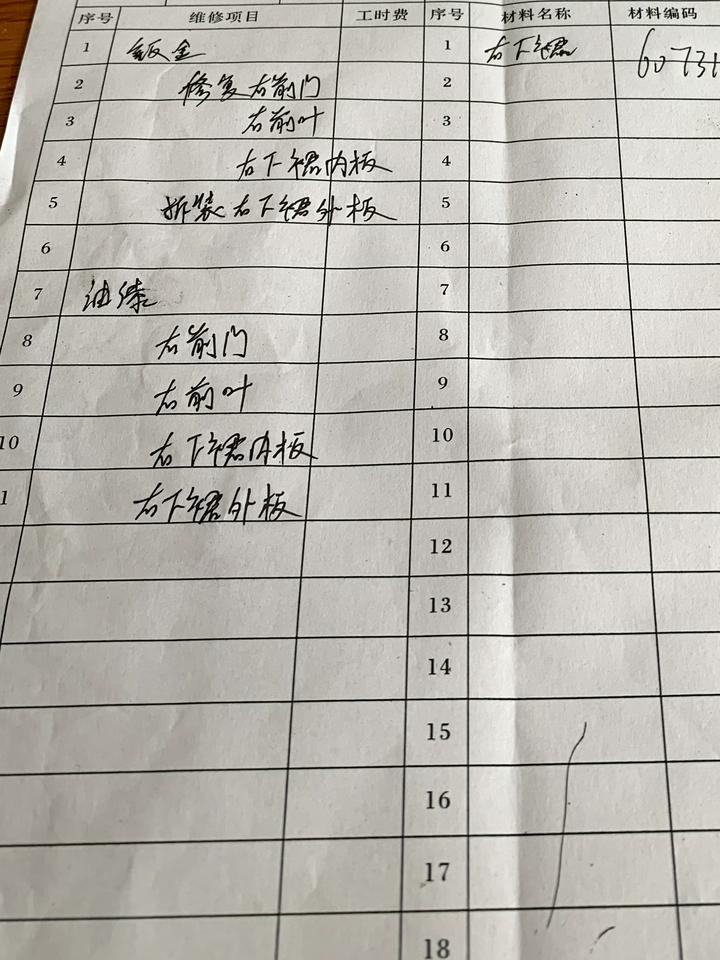 序号 维修项目 工时费 序号 材料名称 材料编码
1 钣金 1 右下裙 60731
2 修复右前门 2
3 右前叶 3
4 右下裙内板 4
5 拆装右下裙外板 5
6 6
7 油漆 7
8 右前门 8
9 右前叶 9
10 右下裙内板 10
1 右下裙外板 11
12
13
14
15
16
17
18